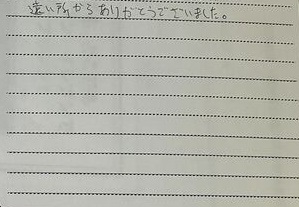 遠い所からありがとうございました。